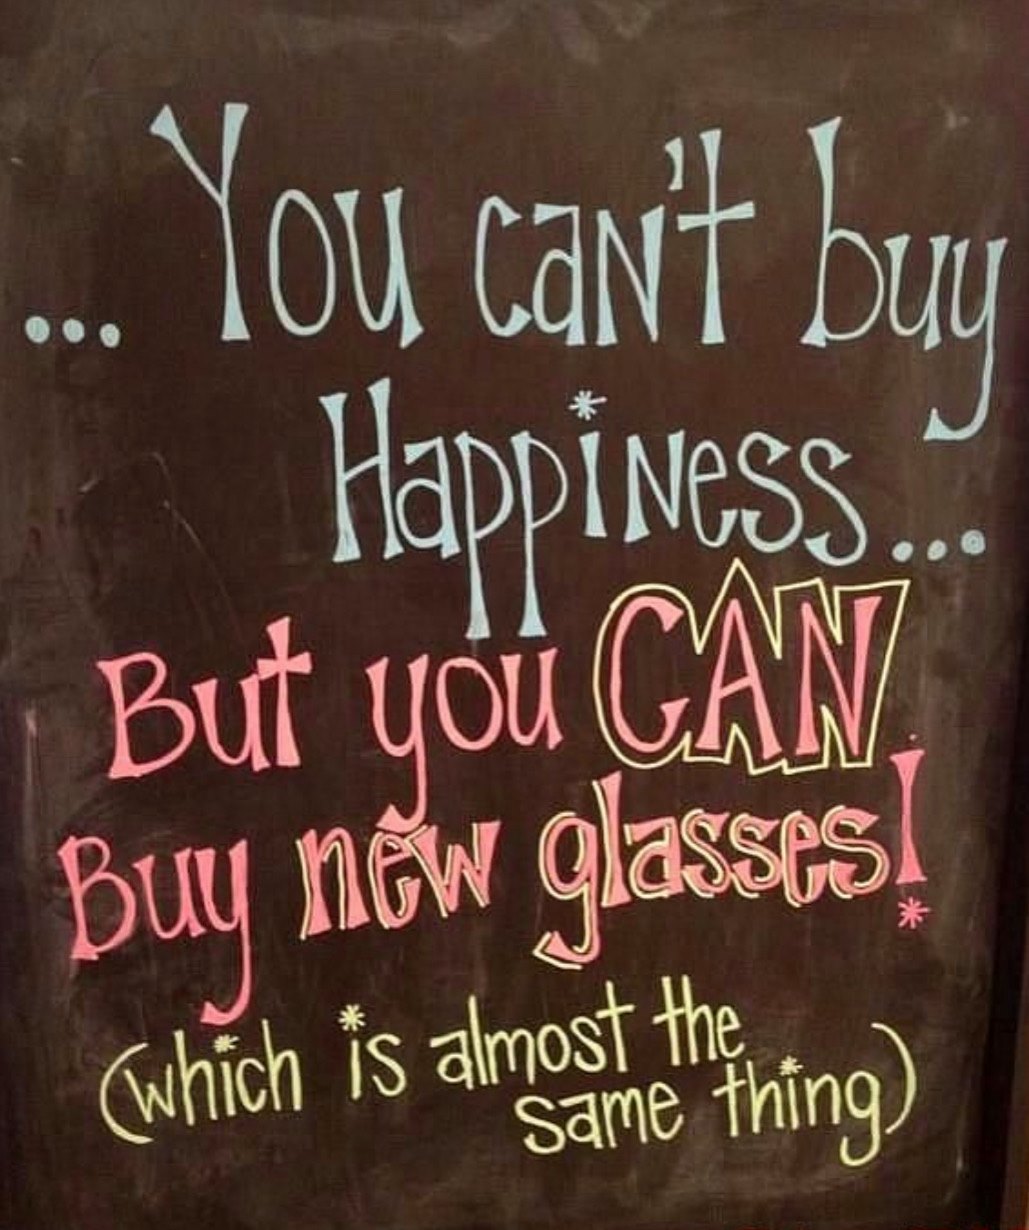 ... You can't buy
Happiness...
But you CAN
Buy new glasses!
(which is almost the
same thing)